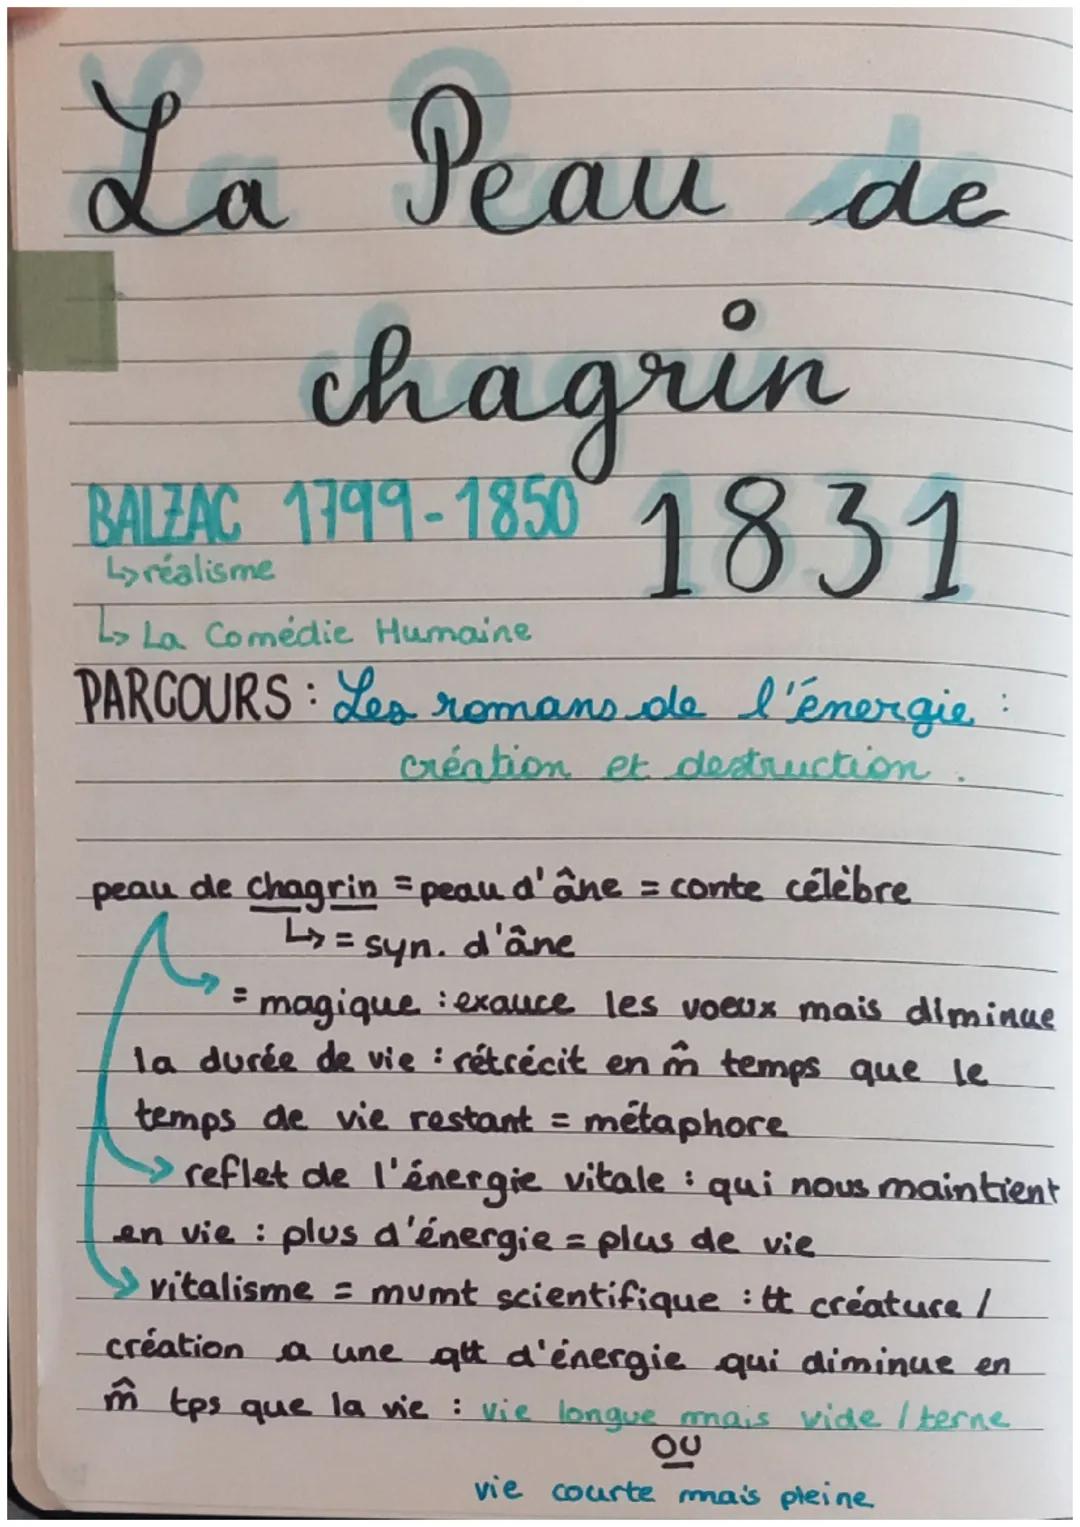 La Peau de
chagrin
BALZAC 1799-1850 1831
↳ réalisme
↳ La Comédie Humaine
PARCOURS : Les romans de l'énergie :
création et destruction.
peau de chagrin = peau d'âne = conte célèbre
↳ = syn. d'âne
= magique : exauce les voeux mais diminue
la durée de vie : rétrécit en m̂ temps que le
temps de vie restant = métaphore
reflet de l'énergie vitale : qui nous maintient
en vie : plus d'énergie = plus de vie
vitalisme = mvmt scientifique : tt créature /
création a une qtt d'énergie qui diminue en
m̂ tps que la vie : vie longue mais vide / terne
OU
vie courte mais pleine